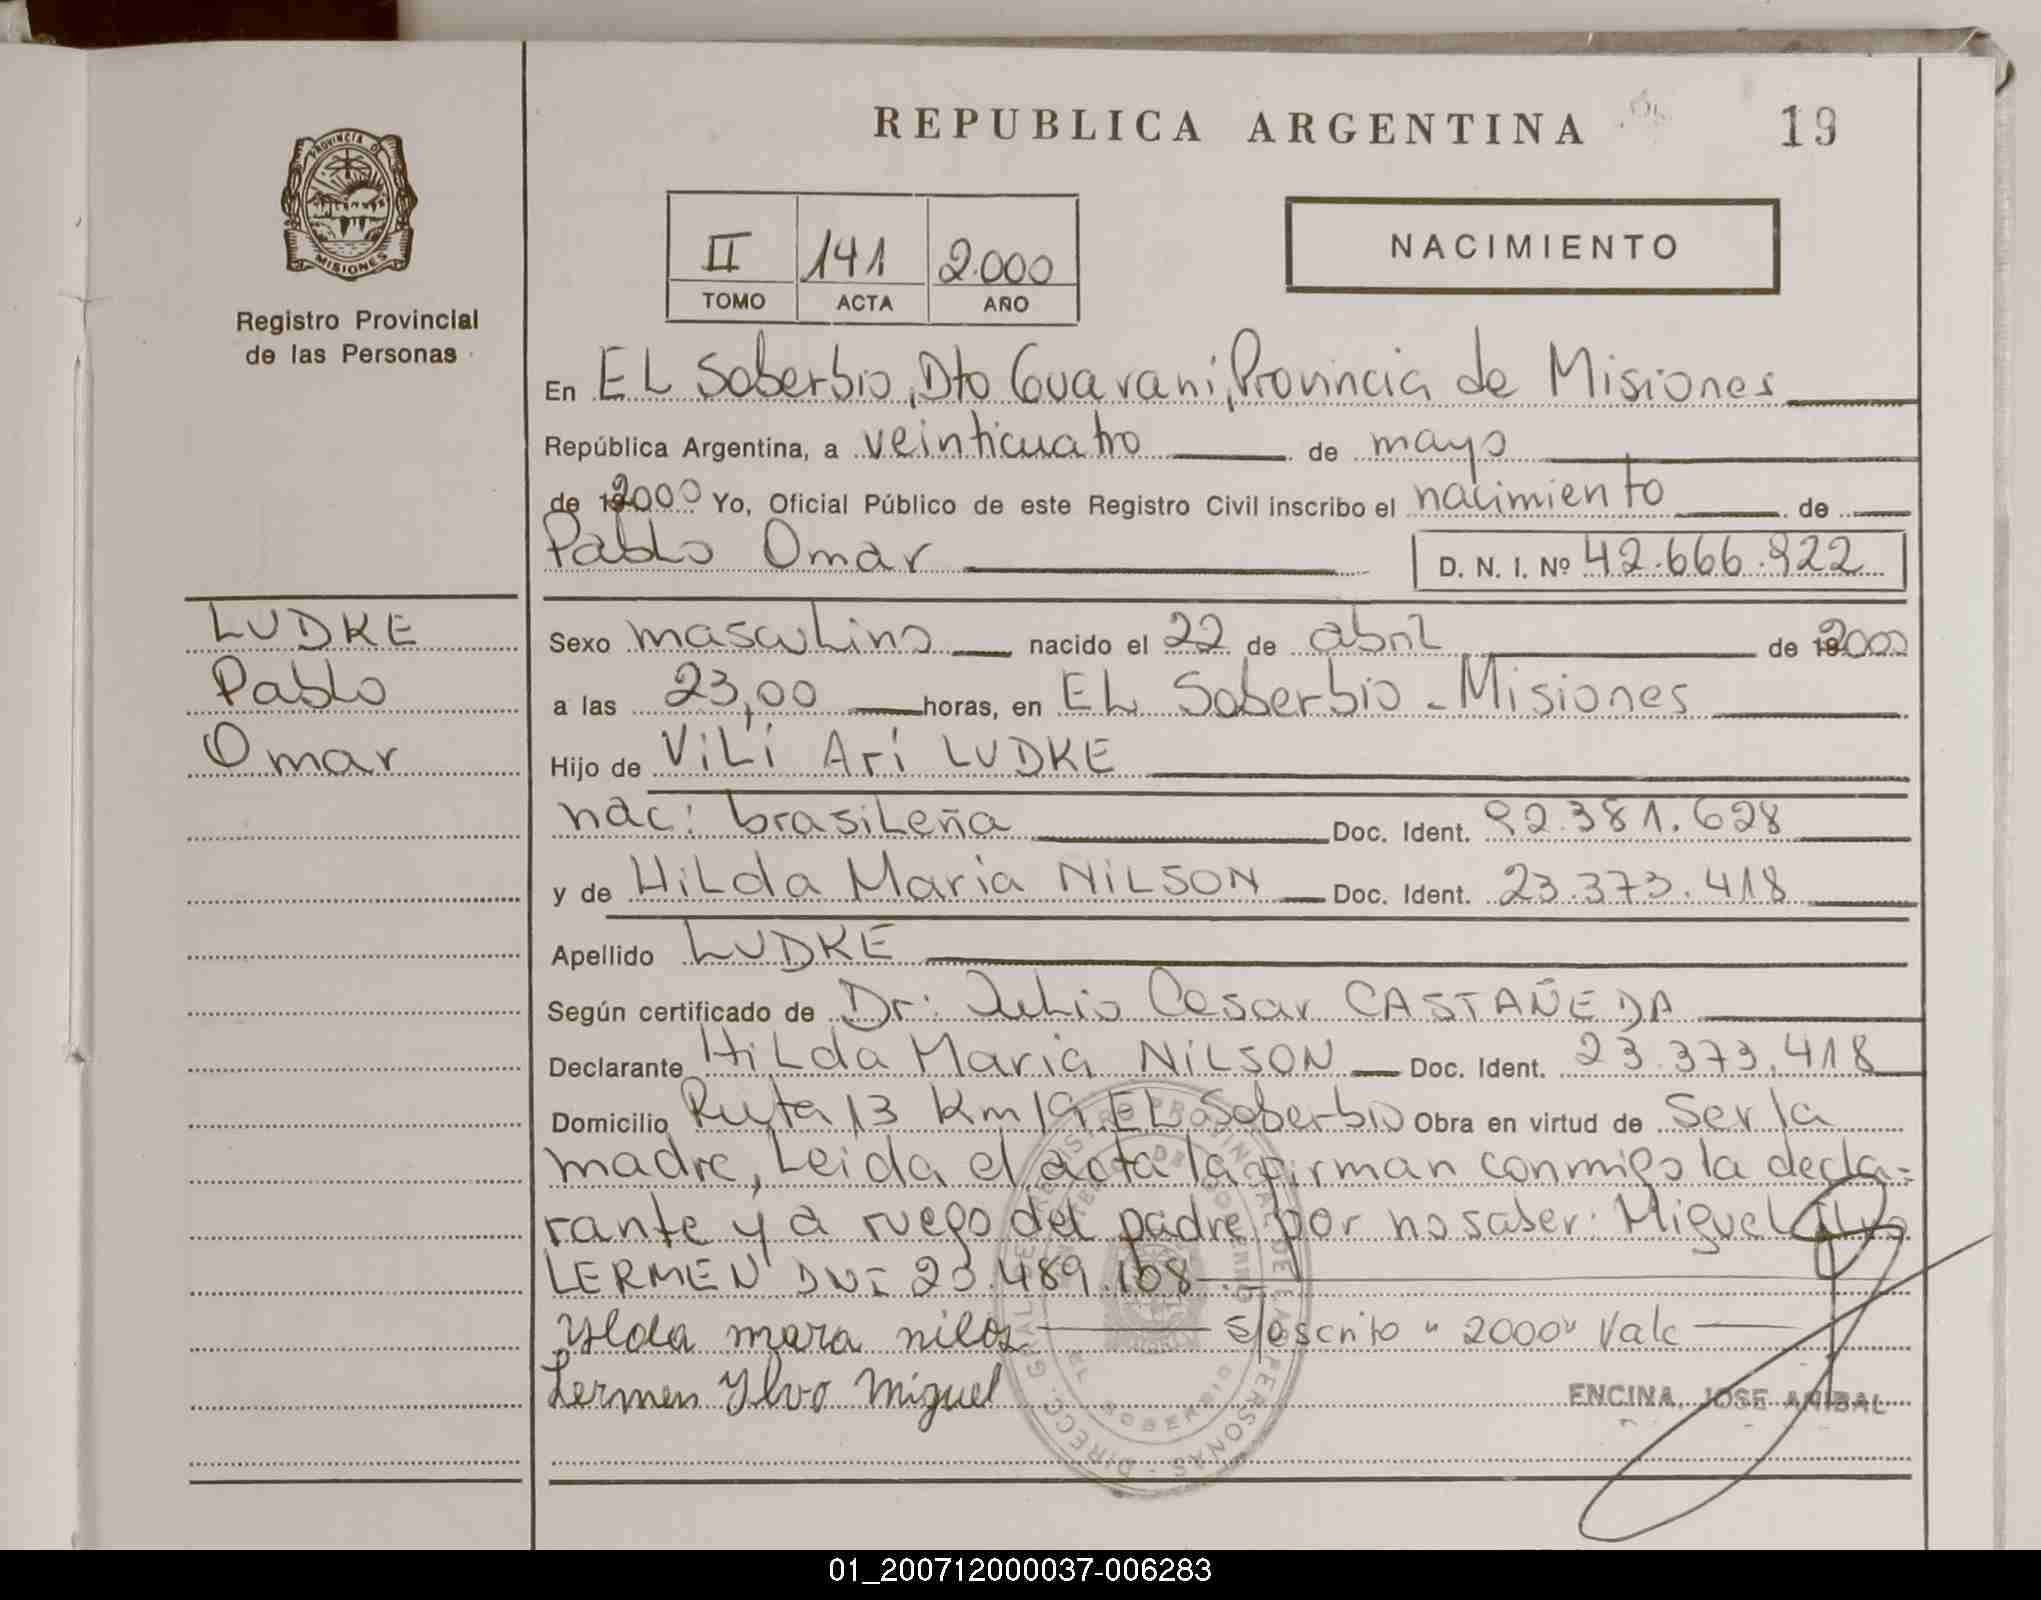 REPUBLICA ARGENTINA
19
PROVINCIA D
MISIONES
Registro Provincial
de las Personas
II 141 2.000
TOMO ACTA AÑO
NACIMIENTO
En EL Soberbio, Dto Guarani, Provincia de Misiones
República Argentina, a veinticuatro de mayo
de 2000 Yo, Oficial Público de este Registro Civil inscribo el nacimiento de
Pablo Omar D. N. I. Nº 42.666.922
LUDKE
Pablo
Omar
Sexo masculino nacido el 22 de abril de 2000
a las 23,00 horas, en EL Soberbio - Misiones
Hijo de ViLi Ari LUDKE
nac: brasileña Doc. Ident. 92.381.628
y de HiLda Maria NiLSON Doc. Ident. 23.373.418
Apellido LUDKE
Según certificado de Dr: Julio Cesar CASTAÑEDA
Declarante HiLda Maria NiLSON Doc. Ident. 23.373.418
Domicilio Ruta 13 Km 19. EL Soberbio Obra en virtud de Ser la
madre, Leida el acta la firman conmigo la decla-
rante y a ruego del padre por no saber: Miguel
LERMEN DNI 23.489.168
Ylda mara nilos S/escrito "2000" Vale
Lermen Ylvo Miguel
ENCINA, JOSE ANIBAL
DIRECC. GRAL DE REGISTRO PROVINCIAL DE LAS PERSONAS
EL SOBERBIO
01_200712000037-006283